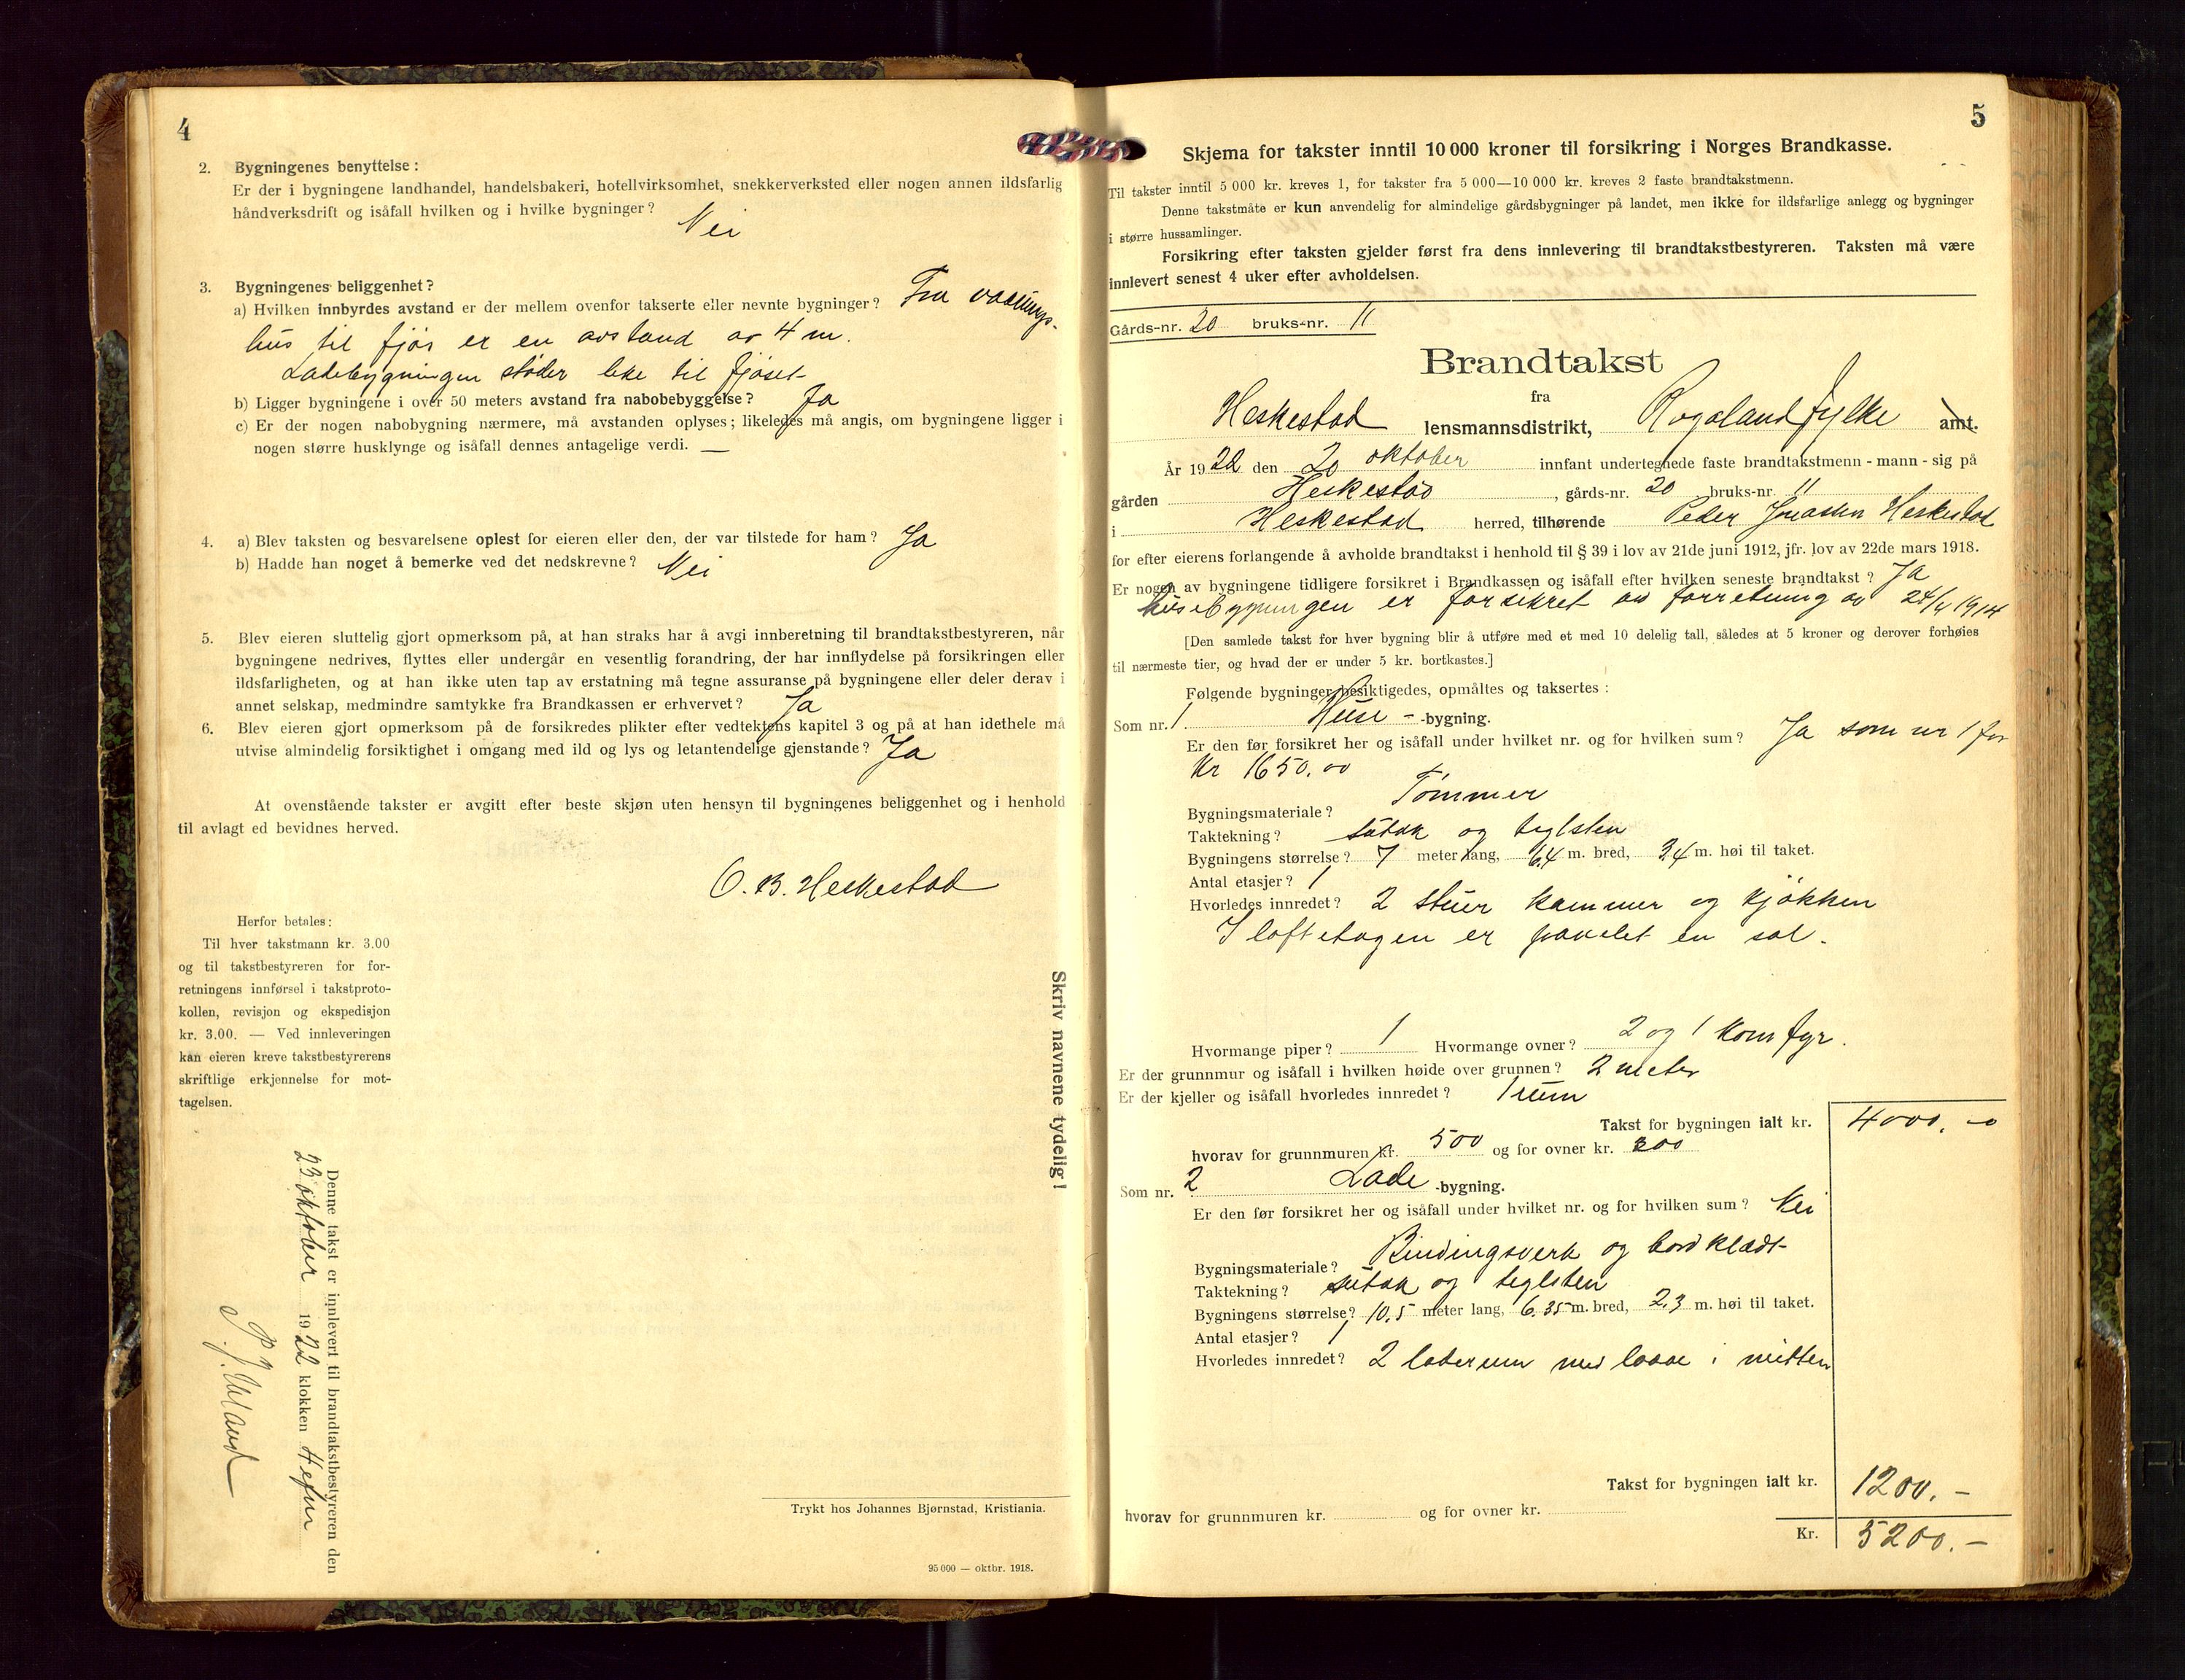 4
2. Bygningenes benyttelse:
Er der i bygningene landhandel, handelsbakeri, hotellvirksomhet, snekkerverksted eller nogen annen ildsfarlig
håndverksdrift og isåfall hvilken og i hvilke bygninger? Nei
3. Bygningenes beliggenhet?
a) Hvilken innbyrdes avstand er der mellem ovenfor takserte eller nevnte bygninger? Fra vaanings-
hus til fjøs er en avstand av 4 m.
Ladebygningen støder like til fjøset
b) Ligger bygningene i over 50 meters avstand fra nabobebyggelse? Ja
c) Er der nogen nabobygning nærmere, må avstanden oplyses; likeledes må angis, om bygningene ligger i
nogen større husklynge og isåfall dennes antagelige verdi. —
4. a) Blev taksten og besvarelsene oplest for eieren eller den, der var tilstede for ham? Ja
b) Hadde han noget å bemerke ved det nedskrevne? Nei
5. Blev eieren sluttelig gjort opmerksom på, at han straks har å avgi innberetning til brandtakstbestyreren, når
bygningene nedrives, flyttes eller undergår en vesentlig forandring, der har innflydelse på forsikringen eller
ildsfarligheten, og at han ikke uten tap av erstatning må tegne assuranse på bygningene eller deler derav i
annet selskap, medmindre samtykke fra Brandkassen er erhvervet? Ja
6. Blev eieren gjort opmerksom på de forsikredes plikter efter vedtektens kapitel 3 og på at han idethele må
utvise almindelig forsiktighet i omgang med ild og lys og letantendelige gjenstande? Ja
At ovenstående takster er avgitt efter beste skjøn uten hensyn til bygningenes beliggenhet og i henhold
til avlagt ed bevidnes herved.
O. B. Heskestad
Herfor betales:
Til hver takstmann kr. 3.00
og til takstbestyreren for for-
retningens innførsel i takstproto-
kollen, revisjon og ekspedisjon
kr. 3.00. — Ved innleveringen
kan eieren kreve takstbestyrerens
skriftlige erkjennelse for mot-
tagelsen.
Skriv navnene tydelig!
Denne takst er innlevert til brandtakstbestyreren den
23 oktober 1922 klokken
Trykt hos Johannes Bjørnstad, Kristiania.
95 000 — oktbr. 1918.
5
Skjema for takster inntil 10 000 kroner til forsikring i Norges Brandkasse.
Til takster inntil 5 000 kr. kreves 1, for takster fra 5 000—10 000 kr. kreves 2 faste brandtakstmenn.
Denne takstmåte er kun anvendelig for almindelige gårdsbygninger på landet, men ikke for ildsfarlige anlegg og bygninger
i større hussamlinger.
Forsikring efter taksten gjelder først fra dens innlevering til brandtakstbestyreren. Taksten må være
innlevert senest 4 uker efter avholdelsen.
Gårds-nr. 20 bruks-nr. 11
Brandtakst
fra
Heskestad lensmannsdistrikt, Rogaland fylke amt.
År 1922 den 20 oktober innfant undertegnede faste brandtakstmenn - mann - sig på
gården Heskestad, gårds-nr. 20 bruks-nr. 11
i Heskestad herred, tilhørende Peder Jonassen Heskestad
for efter eierens forlangende å avholde brandtakst i henhold til § 39 i lov av 21de juni 1912, jfr. lov av 22de mars 1918.
Er nogen av bygningene tidligere forsikret i Brandkassen og isåfall efter hvilken seneste brandtakst? Ja
husebygningen er forsikret av forretning av 24/4 1914
[Den samlede takst for hver bygning blir å utføre med et med 10 delelig tall, således at 5 kroner og derover forhøies
til nærmeste tier, og hvad der er under 5 kr. bortkastes.]
Følgende bygninger besiktigedes, opmåltes og taksertes:
Som nr. 1 Huse - -bygning.
Er den før forsikret her og isåfall under hvilket nr. og for hvilken sum? Ja som nr 1 for
Kr 1650,00
Bygningsmateriale? Tømmer
Taktekning? sutak og teglsten
Bygningens størrelse? 7 meter lang, 6,4 m. bred, 3,4 m. høi til taket.
Antal etasjer? 1
Hvorledes innredet? 2 stuer kammer og kjøkken
I loftetagen er panelet en sal.
Hvormange piper? 1 Hvormange ovner? 2 og 1 komfyr.
Er der grunnmur og isåfall i hvilken høide over grunnen? 2 meter
Er der kjeller og isåfall hvorledes innredet? 1 rum
Takst for bygningen ialt kr. 4000,00
hvorav for grunnmuren kr. 500 og for ovner kr. 200
Som nr. 2 Lade -bygning.
Er den før forsikret her og isåfall under hvilket nr. og for hvilken sum? Nei
Bygningsmateriale? Bindingsverk og bordklædt
Taktekning? sutak og teglsten
Bygningens størrelse? 10,5 meter lang, 6,35 m. bred, 2,3 m. høi til taket.
Antal etasjer? 1
Hvorledes innredet? 2 laderum med laave i midten
Takst for bygningen ialt kr. 1200.-
hvorav for grunnmuren kr. og for ovner kr.
Kr. 5200.-